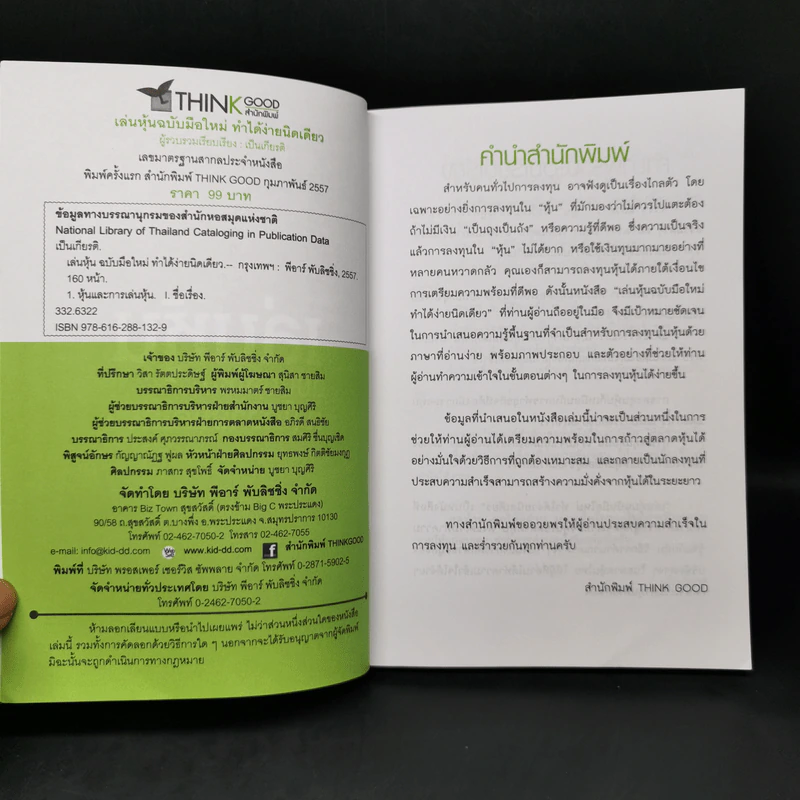 THINK GOOD
สำนักพิมพ์
เล่นหุ้นฉบับมือใหม่ ทำได้ง่ายนิดเดียว
ผู้รวบรวมเรียบเรียง : เป็นเกียรติ
เลขมาตรฐานสากลประจำหนังสือ
พิมพ์ครั้งแรก สำนักพิมพ์ THINK GOOD กุมภาพันธ์ 2557
ราคา 99 บาท
ข้อมูลทางบรรณานุกรมของสำนักหอสมุดแห่งชาติ
National Library of Thailand Cataloging in Publication Data
เป็นเกียรติ.
เล่นหุ้น ฉบับมือใหม่ ทำได้ง่ายนิดเดียว.-- กรุงเทพฯ : พีอาร์ พับลิชชิ่ง, 2557.
160 หน้า.
1. หุ้นและการเล่นหุ้น. I. ชื่อเรื่อง.
332.6322
ISBN 978-616-288-132-9
เจ้าของ บริษัท พีอาร์ พับลิชชิ่ง จำกัด
ที่ปรึกษา วิสา รัตตประดิษฐ์ ผู้พิมพ์ผู้โฆษณา สุนิสา ชายสิม
บรรณาธิการบริหาร พรหมมาตร์ ชายสิม
ผู้ช่วยบรรณาธิการบริหารฝ่ายสำนักงาน บูชยา บุญศีริ
ผู้ช่วยบรรณาธิการบริหารฝ่ายการตลาดหนังสือ อภิรดี สนธิชัย
บรรณาธิการ ประสงค์ ศุภวรรณาภรณ์ กองบรรณาธิการ สมศิริ ชื่นบุญเชิด
พิสูจน์อักษร กัญญาณัฏฐ พู่ผล หัวหน้าฝ่ายศิลปกรรม ยุทธพงษ์ กิตติชัยมงกุฎ
ศิลปกรรม ภาสกร สุขโพธิ์ จัดจำหน่าย บูชยา บุญศีริ
จัดทำโดย บริษัท พีอาร์ พับลิชชิ่ง จำกัด
อาคาร Biz Town สุขสวัสดิ์ (ตรงข้าม Big C พระประแดง)
90/58 ถ.สุขสวัสดิ์ ต.บางพึ่ง อ.พระประแดง จ.สมุทรปราการ 10130
โทรศัพท์ 02-462-7050-2 โทรสาร 02-462-7055
e-mail: info@kid-dd.com www.kid-dd.com f สำนักพิมพ์ THINKGOOD
พิมพ์ที่ บริษัท พรอสเพอร์ เซอร์วิส ซัพพลาย จำกัด โทรศัพท์ 0-2871-5902-5
จัดจำหน่ายทั่วประเทศโดย บริษัท พีอาร์ พับลิชชิ่ง จำกัด
โทรศัพท์ 0-2462-7050-2
ห้ามลอกเลียนแบบหรือนำไปเผยแพร่ ไม่ว่าส่วนหนึ่งส่วนใดของหนังสือ
เล่มนี้ รวมทั้งการคัดลอกด้วยวิธีการใด ๆ นอกจากจะได้รับอนุญาตจากผู้จัดพิมพ์
มิฉะนั้นจะถูกดำเนินการทางกฎหมาย
คำนำสำนักพิมพ์
สำหรับคนทั่วไปการลงทุน อาจฟังดูเป็นเรื่องไกลตัว โดย
เฉพาะอย่างยิ่งการลงทุนใน "หุ้น" ที่มักมองว่าไม่ควรไปแตะต้อง
ถ้าไม่มีเงิน "เป็นถุงเป็นถัง" หรือความรู้ที่ดีพอ ซึ่งความเป็นจริง
แล้วการลงทุนใน "หุ้น" ไม่ได้ยาก หรือใช้เงินทุนมากมายอย่างที่
หลายคนหวาดกลัว คุณเองก็สามารถลงทุนหุ้นได้ภายใต้เงื่อนไข
การเตรียมความพร้อมที่ดีพอ ดังนั้นหนังสือ "เล่นหุ้นฉบับมือใหม่
ทำได้ง่ายนิดเดียว" ที่ท่านผู้อ่านถืออยู่ในมือ จึงมีเป้าหมายชัดเจน
ในการนำเสนอความรู้พื้นฐานที่จำเป็นสำหรับการลงทุนในหุ้นด้วย
ภาษาที่อ่านง่าย พร้อมภาพประกอบ และตัวอย่างที่ช่วยให้ท่าน
ผู้อ่านทำความเข้าใจในขั้นตอนต่างๆ ในการลงทุนหุ้นได้ง่ายขึ้น
ข้อมูลที่นำเสนอในหนังสือเล่มนี้น่าจะเป็นส่วนหนึ่งในการ
ช่วยให้ท่านผู้อ่านได้เตรียมความพร้อมในการก้าวสู่ตลาดหุ้นได้
อย่างมั่นใจด้วยวิธีการที่ถูกต้องเหมาะสม และกลายเป็นนักลงทุนที่
ประสบความสำเร็จสามารถสร้างความมั่งคั่งจากหุ้นได้ในระยะยาว
ทางสำนักพิมพ์ขออวยพรให้ผู้อ่านประสบความสำเร็จใน
การลงทุน และร่ำรวยกันทุกท่านครับ
สำนักพิมพ์ THINK GOOD